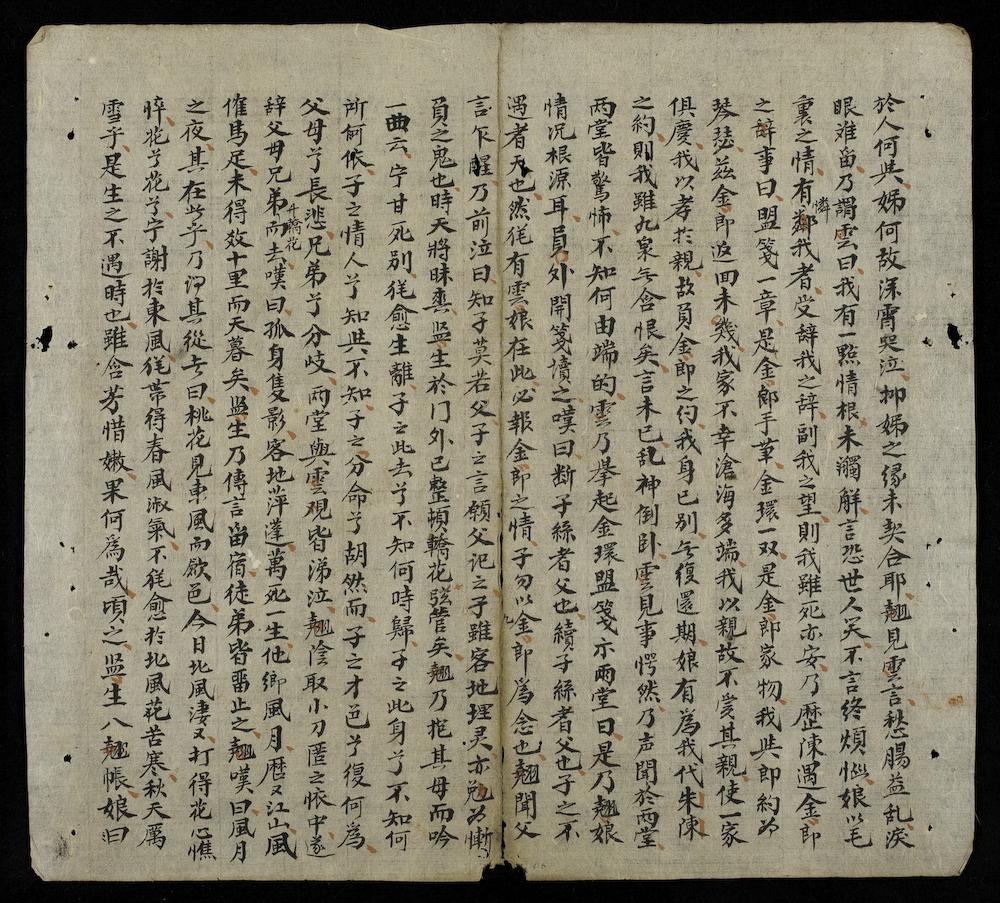 於人何與姊何故深宵哭泣抑姊之緣未契合耶翹見雲言愁腸益乱淚
眼难畄乃謂雲曰我有一點情根未觸解言恐世人笑不言終煩惱娘以毛
裏之情有鄰我者受辞我之辞副我之望則我雖死亦安乃歷陳遇金郎
憐
之辞事曰盟箋一章是金郎手筆金環一双是金郎家物我與郎約为
琴瑟兹金郎返回未幾我家不幸滄海多端我以親故不爱其親使一家
俱慶我以孝於親故員金郎之約我身已别無復還期娘有為我代朱陳
之約則我雖九泉無含恨矣言未已乱神倒卧雲見事愕然乃声聞於两堂
两堂皆驚怖不知何由端的雲乃擧起金環盟箋示两堂曰是乃翹娘
情况根源耳員外開箋讀之嘆曰断子絲者父也續子絲者父也子之不
遇者天也然徃有雲娘在此必報金郎之情子勿以金郎為念也翹聞父
言乍醒乃前泣曰知子莫若父子之言願父記之子雖客地埋灵亦免为慚
員之鬼也時天將昧爽监生於门外已整頓轎花弦管矣翹乃抱其母而吟
一曲云宁甘死别徃愈生離子之此去兮不知何時歸子之此身兮不知何
所何依子之情人兮知與不知子之分命兮胡然而子之才色兮復何為
父母兮長悲兄弟兮分歧两堂與雲观皆涕泣翹陰取小刀匿之怀中遂
辞父母兄弟而去嘆曰孤身隻影客地萍蓬萬死一生他鄉風月歷又江山風
升轎花
催馬足未得效十里而天暮矣监生乃傳言畄宿徒弟皆畱止之翹嘆曰風月
之夜其在此乎乃謂其從者曰桃花見東風而歛色今日北風凄又打得花心憔
悴花兮花兮宁謝於東風徃帶得春風淑氣不徃愈於北風花苦寒秋天厲
雪乎是生之不遇時也雖含芳惜嫩果何為哉頃之监生入翹帳娘曰